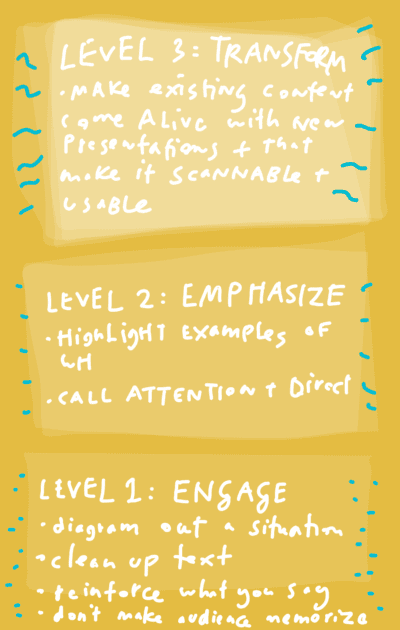 LEVEL 3: TRANSFORM
• MAKE existing content
come ALIVE with New
Presentations + that
make it SCANNABLE +
USABLE
LEVEL 2: EMPHASIZE
• HIGHLIGHT EXAMPLES OF
WH
• CALL ATTENTION + Direct
LEVEL 1: ENGAGE
• diagram out a situation
• clean up text
• reinforce what you say
• don't make audience memorize